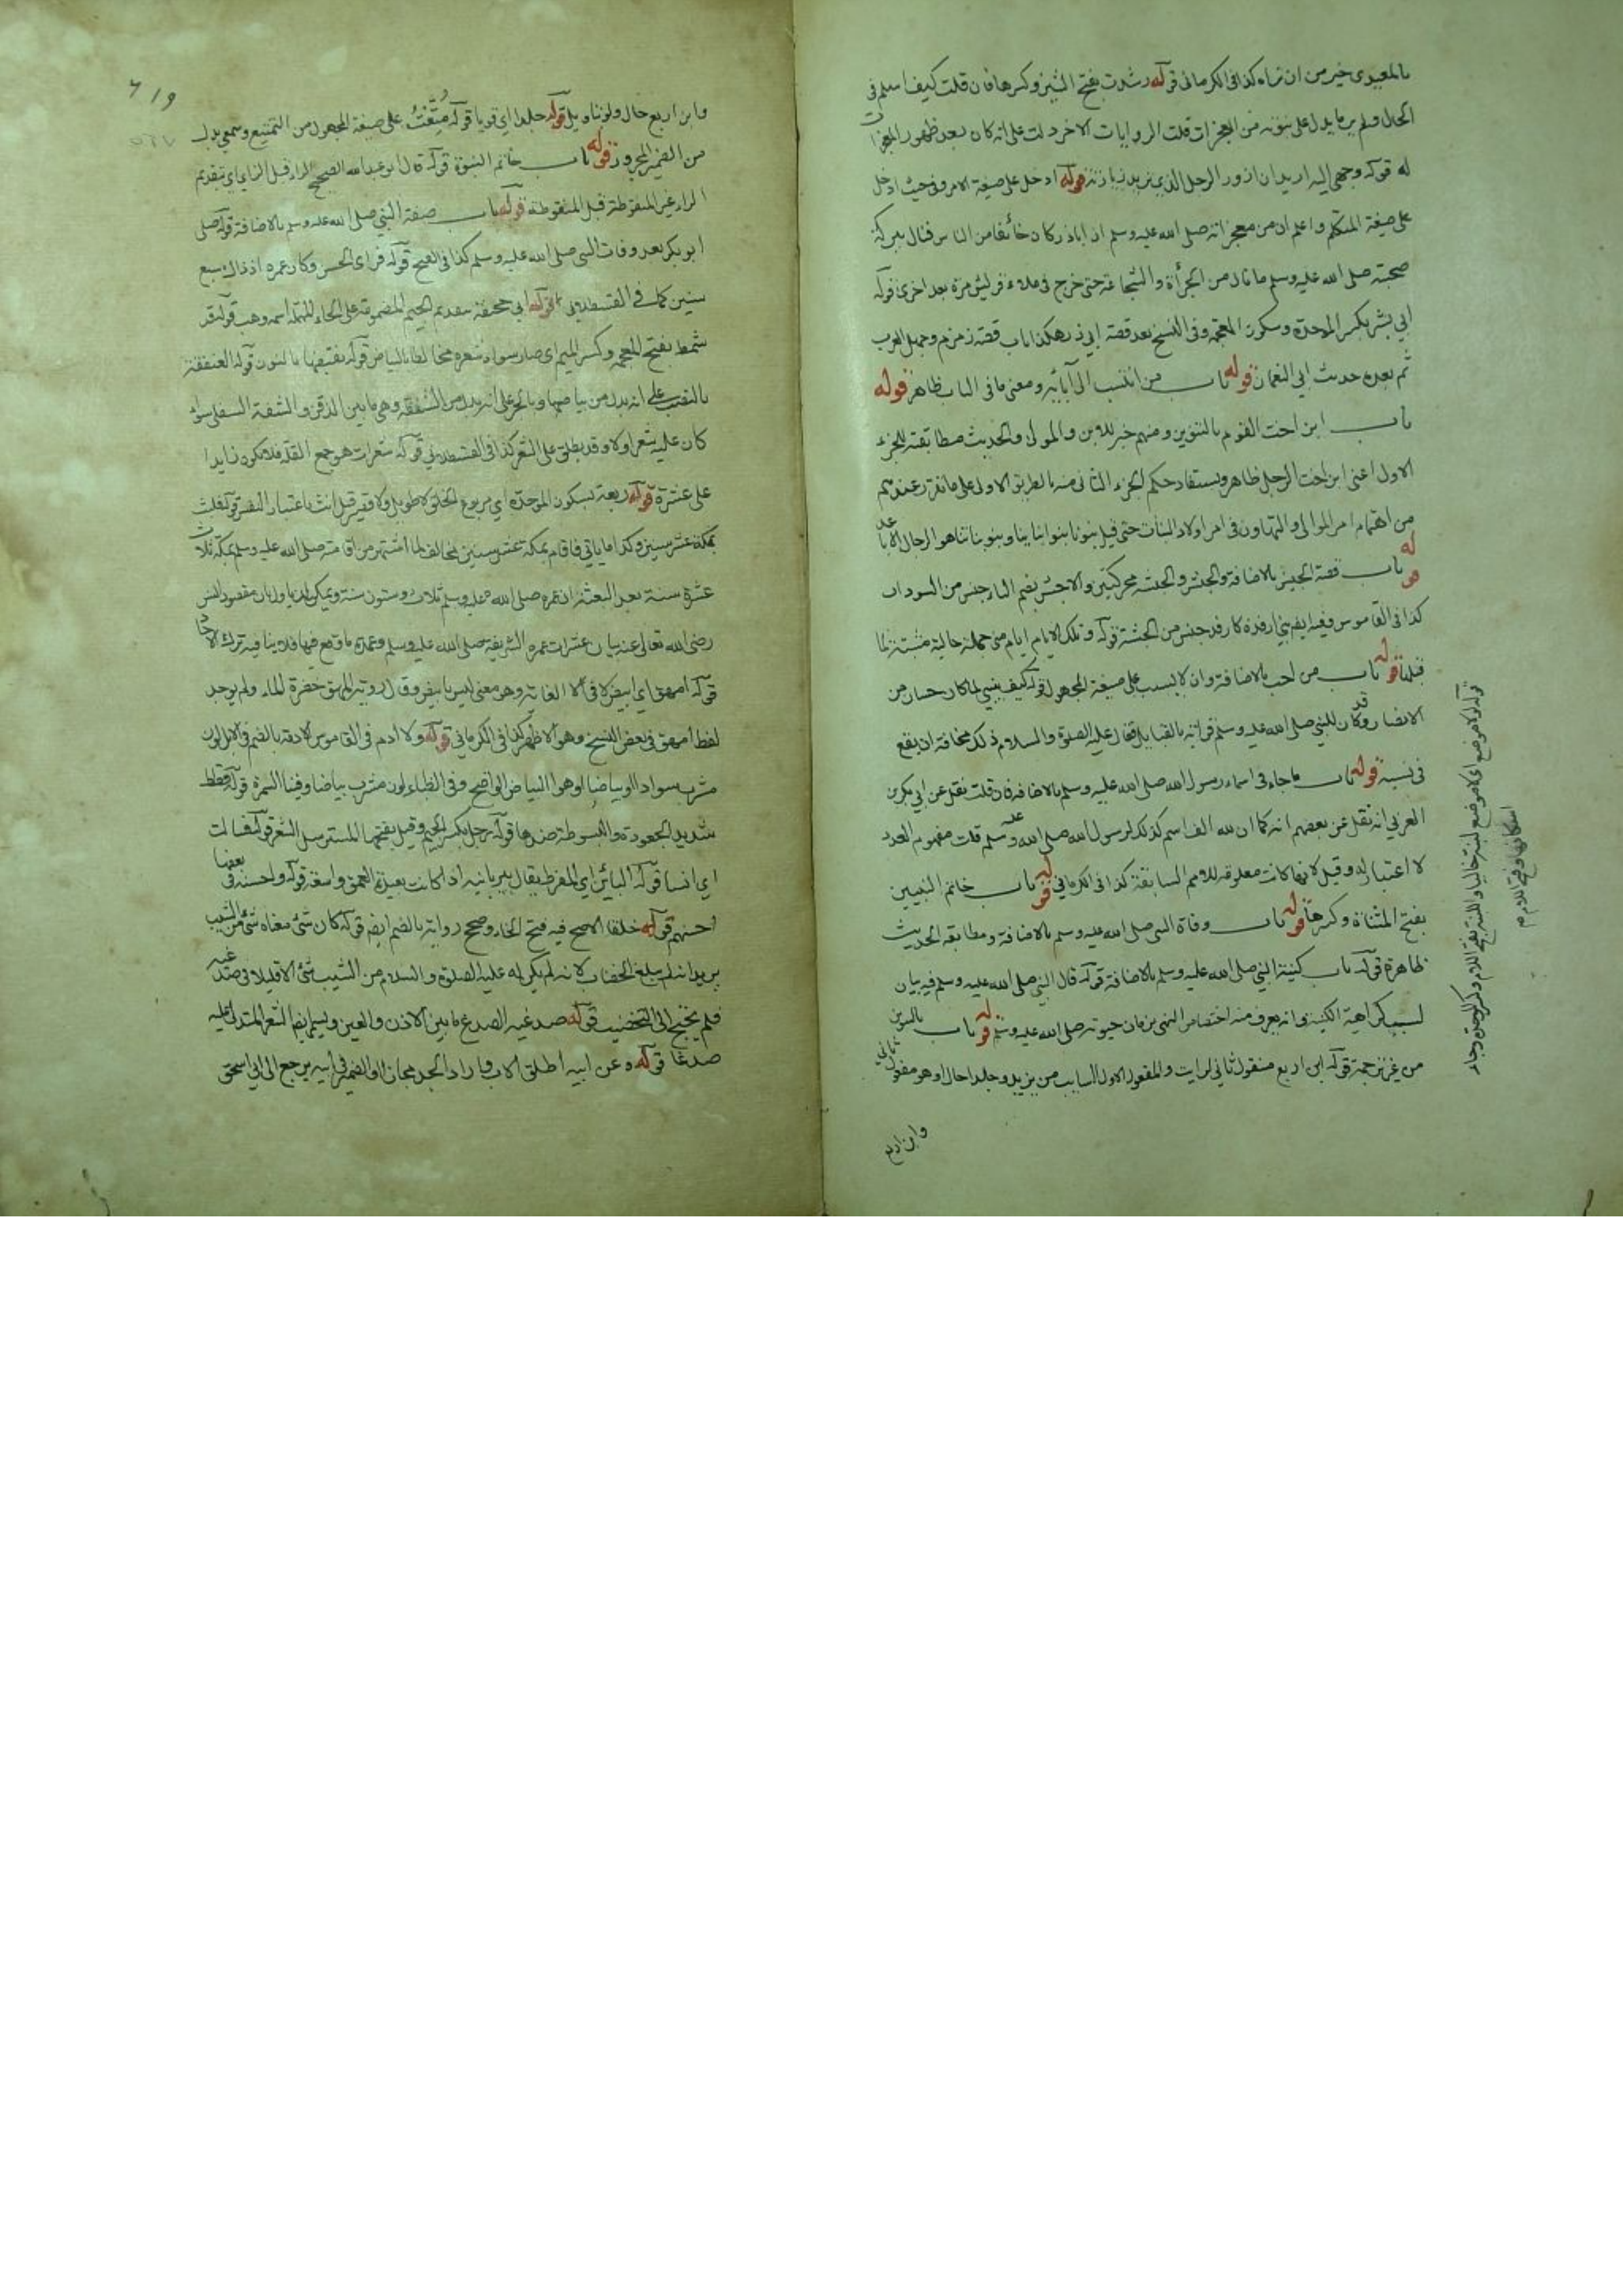 بالمعيدي خير من ان تراه كذا في الكرماني قوله رشدت بفتح الشين وكسرها فان قلت كيف اسلم في
الحال ولم ير ما يدل على نبوته من المعجزات قلت الروايات الاخر دلت على انه كان بعد ظهور المعجزات
له قوله وجهي اليه اريد ان ازور الرجل الذي نريد زيارته قوله ادخل على صيغة الامر وفي حيث ادخل
على صيغة المتكلم واعلم ان من معجزاته صلى الله عليه وسلم ان اباذر كان خائفا من الناس فنال ببركة
صحبته صلى الله عليه وسلم ما نال من الجرأة والشجاعة حتى خرج في ملاء قريش مرة بعد اخرى قوله
ابي بشر بكسر الموحدة وسكون المعجمة وفي النسخ بعد قصة ابي ذر هكذا باب قصة زمزم وجهل العرب
ثم بعده حديث ابي النعمان قوله باب من انتسب الى آبائه ومعنى ما في الباب ظاهر قوله
باب ابن اخت القوم بالتنوين ومنهم خبر للابن والمولى والحديث مطابقته للجزء
الاول اعني ابن اخت الرجل ظاهر ويستفاد حكم الجزء الثاني منه بالطريق الاولى على ما تقرر عندهم
من اهتمام امر الموالي والتهاون في امر اولاد البنات حتى قيل بنونا بنوا ابنائنا وبنو بناتنا هو الرجال الاباعد
قوله باب قصة الحبش بالاضافة والحبش والحبشة محركتين والاحبش بضم الباء جنس من السودان
كذا في القاموس وفيه ايضا بني ارفدة كارفد جنس من الحبشة قوله وتلك الايام ايام منى جملة حالية مثبتة لما
قبلها قوله باب من احب بالاضافة وان لا يسب على صيغة المجهول قوله كيف بنسبي لما كان حسان من
الانصار وقد كان للنبي صلى الله عليه وسلم قرابة بالقبايل فقال عليه الصلوة والسلام ذلك مخافة ان يقع
في نسبه قوله باب ما جاء في اسماء رسول الله صلى الله عليه وسلم بالاضافة فان قلت نقل عن ابي بكر بن
العربي انه نقل عن بعضهم انه كما ان لله الف اسم كذلك لرسول الله صلى الله عليه وسلم قلت مفهوم العدد
لا اعتبار له وقيل لانها كانت معلومة للامم السابقة كذا في الكرماني قوله باب خاتم النبيين
بفتح المثناة وكسرها قوله باب وفاة النبي صلى الله عليه وسلم بالاضافة ومطابقة الحديث
ظاهرة قوله باب كنية النبي صلى الله عليه وسلم بالاضافة قوله قال النبي صلى الله عليه وسلم فيه بيان
لسبب كراهية الكنية وانه يعرف منه اختصاص النهي بزمان حيوته صلى الله عليه وسلم قوله باب بالتنوين
من غير ترجمة قوله ابن اربع مفعول ثاني لرايت والمفعول الاول السايب بن يزيد وجلدا حال او هو مفعول ثاني
وابن اربع
قوله الا موضع اي كان موضع لبنة خاليا واللبنة بفتح اللام وكسر الموحدة وجاء
اسكانها وفتح اللام م
٦١٩
وابن اربع حال ولو بتاويل قوله جلدا اي قويا قوله مُتِّعْتُ على صيغة المجهول من التمتيع وسمعي بدل
من الضمير المجرور قوله باب خاتم النبوة قوله قال ابو عبد الله الصحيح الراء قبل الزاي اي بتقديم
الراء غير المنقوطة قبل المنقوطة قوله باب صفة النبي صلى الله عليه وسلم بالاضافة قوله صلى
ابو بكر بعد وفات النبي صلى الله عليه وسلم كذا في الفتح قوله فراى الحسن وكان عمره اذ ذاك سبع
سنين كما في القسطلاني قوله ابي جحيفة بتقديم الجيم المضمومة على الحاء المهملة اسمه وهب قوله قد
شمط بفتح المعجمة وكسر الميم اي صار سواد شعره مخالطا بالبياض قوله نقبضها بالنون قوله العنفقة
بالنصب على انه بدل من بياضها وبالجر على انه بدل من الشفة وهي ما بين الذقن والشفة السفلى سواء
كان عليه شعر او لا وقد يطلق على الشعر كذا في القسطلاني قوله شعرات هو جمع القلة فلا يكون زايدا
على عشرة قوله ربعة بسكون الموحدة اي مربوع الخلق لا طويل ولا قصير قيل انث باعتبار النفس قوله فلبث
بمكة عشر سنين وكذا ما ياتي فاقام بمكة عشر سنين يخالف لما اشتهر من اقامته صلى الله عليه وسلم بمكة ثلاث
عشرة سنة بعد البعثة ان عمره صلى الله عليه وسلم ثلاث وستون سنة ويمكن ان ياول بان مقصود انس
رضي الله تعالى عنه بيان عشرات عمره الشريفة صلى الله عليه وسلم وعمدة ما وقع فيها فلا ينافيه ترك الآحاد
قوله امهق اي ابيض لا في الغاية وهو معنى ليس بابيض وقال روبة المهق خضرة الماء ولم يوجد
لفظ امهق في بعض النسخ وهو الاظهر كذا في الكرماني قوله ولا ادم في القاموس الادمة بالضم في الابل لون
مشرب سوادا او بياضا او هو البياض الواضح وفي الظباء لون مشرب بياضا وفينا السمرة قوله قطط
شديد الجعودة والبسوطة ضدها قوله رجل بكسر الجيم وقيل بفتحها المسترسل الشعر قوله فسالت
اي انسا قوله البائن اي المفرط يقال بير بائنة اذا كانت بعيدة العمق واسعة قوله واحسنه في بعضها
احسنهم قوله خلقا الاصح فيه فتح الخاء وصح رواية بالضم ايضا قوله كان شئ معناه شئ من الشيب
يريد انه لم يبلغ الخضاب لانه لم يكن له عليه الصلوة والسلام من الشيب شئ الا قليلا في صدغيه
فلم يحتج الى التخضيب قوله صدغيه الصدغ ما بين الاذن والعين ويسمى ايضا الشعر المتدلى عليه
صدغا قوله وعن ابيه اطلق الاب واراد الجد مجازا او الضمير في ابيه يرجع الى ابي اسحق